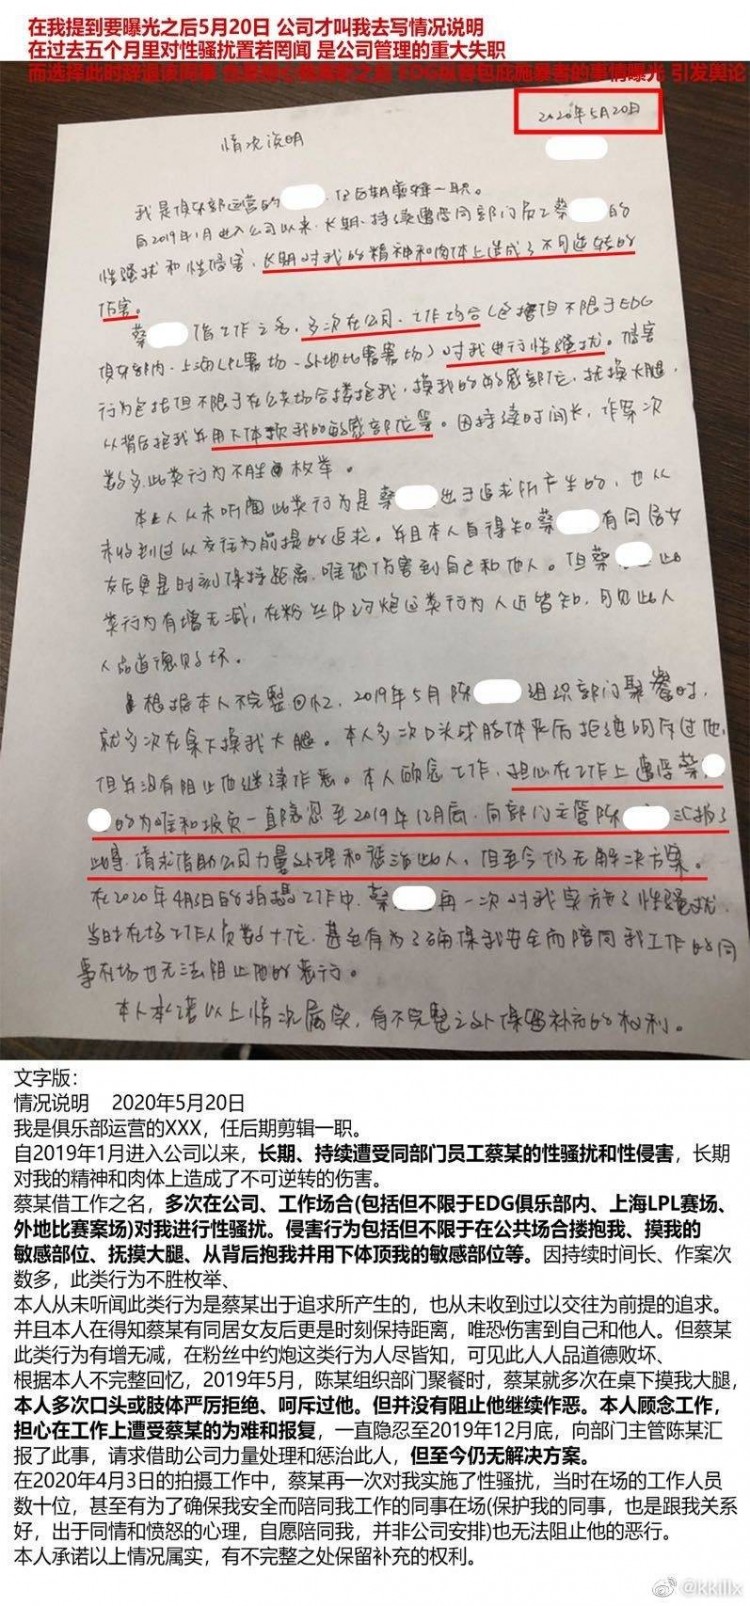 在我提到要曝光之后5月20日 公司才叫我去写情况说明
在过去五个月里对性骚扰置若罔闻 是公司管理的重大失职
而选择此时辞退该同事 EDG 包庇施暴者的事情曝光 引发舆论
2020年5月20日
情况说明
我是俱乐部运营的 任后期剪辑一职。
自2019年1月进入公司以来,长期、持续遭受同部门员工蔡 的
性骚扰和性侵害,长期对我的精神和肉体上造成了不可逆转的
伤害。
蔡 借工作之名,多次在公司、工作场合(包括但不限于EDG
俱乐部内、上海LPL赛场、外地比赛赛场)对我进行性骚扰。侵害
行为包括但不限于在公共场合搂抱我,摸我的敏感部位,抚摸大腿,
从背后抱我并用下体顶我的敏感部位等。因持续时间长,作案次
数多,此类行为不胜枚举。
本人从未听闻此类行为是蔡 出于追求所产生的,也从
未收到过以交往为前提的追求。并且本人自得知蔡 有同居女
友后更是时刻保持距离,唯恐伤害到自己和他人。但蔡 此
类行为有增无减,在粉丝中约炮这类行为人尽皆知,可见此人
人品道德败坏。
根据本人不完整回忆,2019年5月陈 组织部门聚餐时,
就多次在桌下摸我大腿。本人多次口头或肢体严厉拒绝呵斥过他,
但并没有阻止他继续作恶。本人顾念工作,担心在工作上遭受蔡
的为难和报复一直隐忍至2019年12月底,向部门主管陈 汇报了
此事,请求借助公司力量处理和惩治此人,但至今仍无解决方案。
在2020年4月3日的拍摄工作中,蔡 再一次对我实施了性骚扰,
当时在场工作人员数十位,甚至有为了确保我安全而陪同我工作的同
事在场也无法阻止他的恶行。
本人承诺以上情况属实,有不完整之处保留补充的权利。
文字版:
情况说明 2020年5月20日
我是俱乐部运营的XXX,任后期剪辑一职。
自2019年1月进入公司以来,长期、持续遭受同部门员工蔡某的性骚扰和性侵害,长期
对我的精神和肉体上造成了不可逆转的伤害。
蔡某借工作之名,多次在公司、工作场合(包括但不限于EDG俱乐部内、上海LPL赛场、
外地比赛案场)对我进行性骚扰。侵害行为包括但不限于在公共场合搂抱我、摸我的
敏感部位、抚摸大腿、从背后抱我并用下体顶我的敏感部位等。因持续时间长、作案次
数多,此类行为不胜枚举、
本人从未听闻此类行为是蔡某出于追求所产生的,也从未收到过以交往为前提的追求。
并且本人在得知蔡某有同居女友后更是时刻保持距离,唯恐伤害到自己和他人。但蔡某
此类行为有增无减,在粉丝中约炮这类行为人尽皆知,可见此人人品道德败坏、
根据本人不完整回忆,2019年5月,陈某组织部门聚餐时,蔡某就多次在桌下摸我大腿,
本人多次口头或肢体严厉拒绝、呵斥过他。但并没有阻止他继续作恶。本人顾念工作,
担心在工作上遭受蔡某的为难和报复,一直隐忍至2019年12月底,向部门主管陈某汇
报了此事,请求借助公司力量处理和惩治此人,但至今仍无解决方案。
在2020年4月3日的拍摄工作中,蔡某再一次对我实施了性骚扰,当时在场的工作人员
数十位,甚至有为了确保我安全而陪同我工作的同事在场(保护我的同事,也是跟我关系
好,出于同情和愤怒的心理,自愿陪同我,并非公司安排)也无法阻止他的恶行。
本人承诺以上情况属实,有不完整之处保留补充的权利。
@kkillx